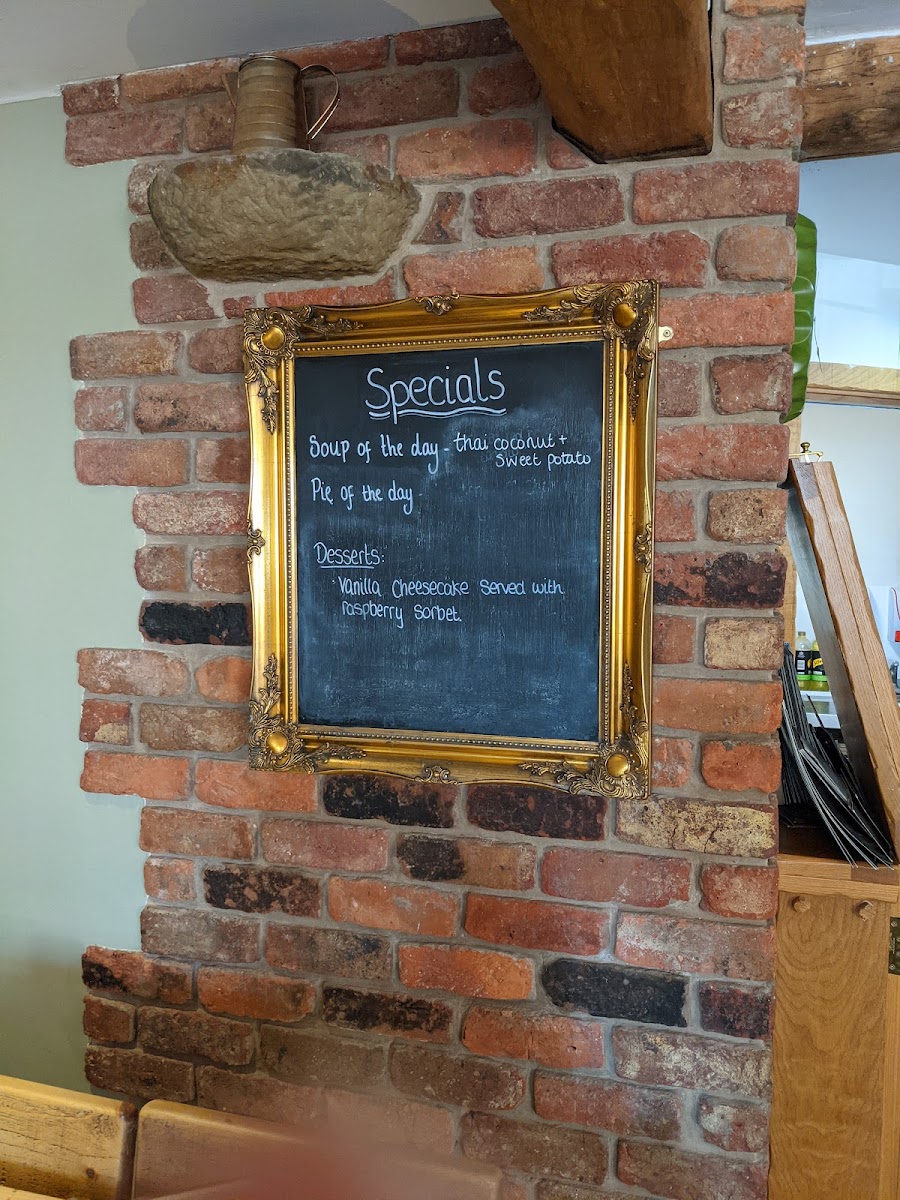 Specials
Soup of the day - thai coconut +
sweet potato
Pie of the day -
Desserts:
Vanilla Cheesecake Served with
raspberry Sorbet.